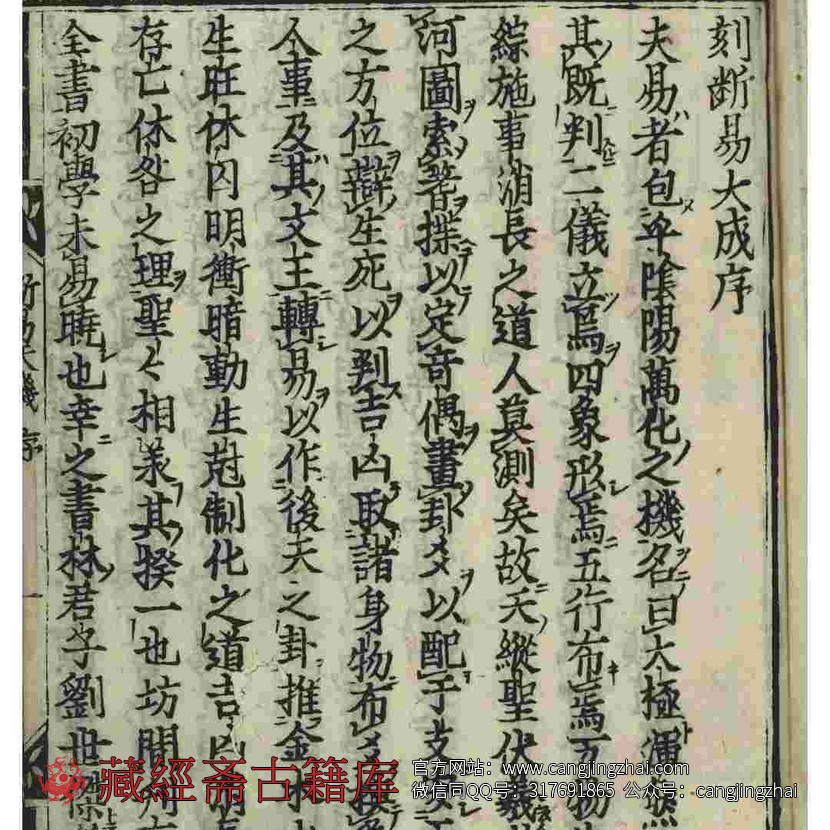 刻断易大成序
夫易者包乎陰陽萬化之機名曰太極渾然
其既判二儀立焉四象形焉五行布焉万物
綜施事消長之道人莫測矣故天縱聖伏羲
河圖索蓍揲以定奇偶畫卦爻以配干支
之方位辯生死以判吉凶取諸身物布
人事及其文王轉易以作後天之卦推金木
生旺休囚明衝暗動生尅制化之道吉凶
存亡休咎之理聖〻相承其揆一也坊間
全書初學未易曉也幸之書林君子劉世
断易天機 序
藏經斋古籍库
官方网站: www.cangjingzhai.com
微信同QQ号: 317691865 公众号: cangjingzhai